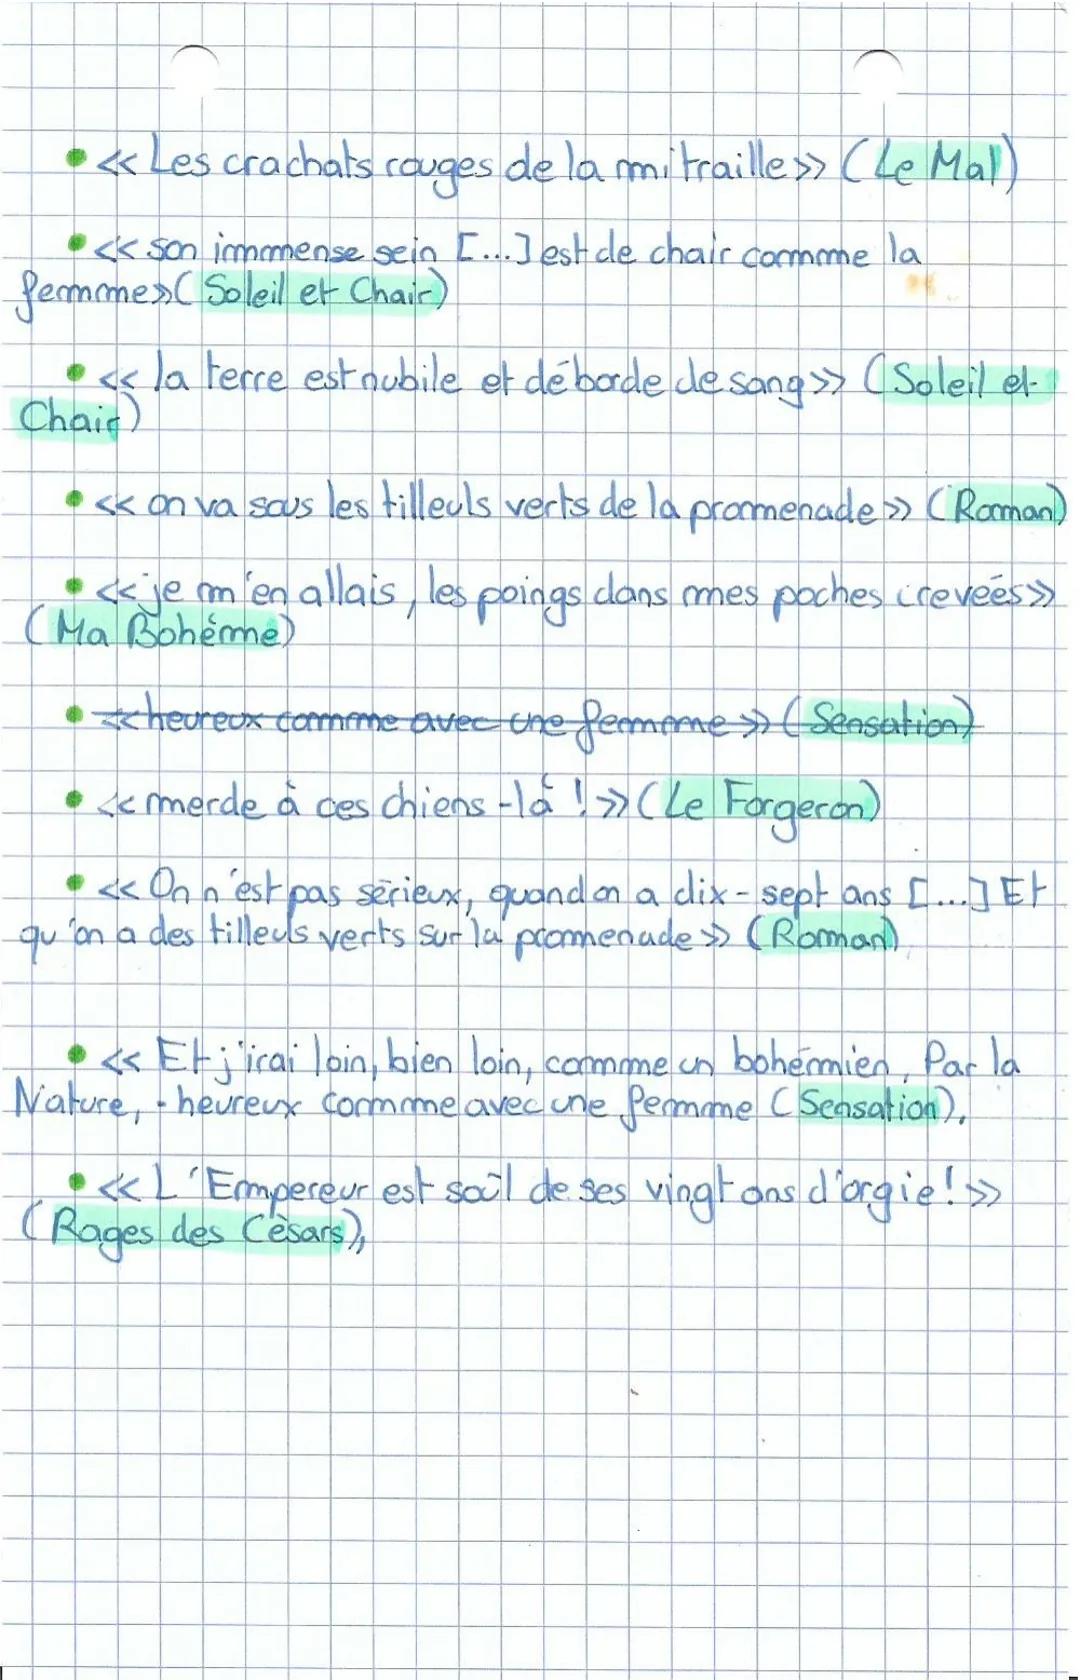 • << Les crachats rouges de la mitraille >> (Le Mal)
• << son immense sein [...] est de chair comme la
femme >> (Soleil et Chair)
• << la terre est nubile et déborde de sang >> (Soleil et
Chair)
• << on va sous les tilleuls verts de la promenade >> (Roman)
• << je m'en allais, les poings dans mes poches crevées >>
(Ma Bohême)
• << heureux comme avec une femme >> (Sensation)
• << merde à ces chiens-là ! >> (Le Forgeron)
• << On n'est pas sérieux, quand on a dix-sept ans [...] Et
qu'on a des tilleuls verts sur la promenade >> (Roman)
• << Et j'irai loin, bien loin, comme un bohémien, Par la
Nature, - heureux comme avec une femme (Sensation),
• << L'Empereur est soûl de ses vingt ans d'orgie ! >>
(Rages des Césars),